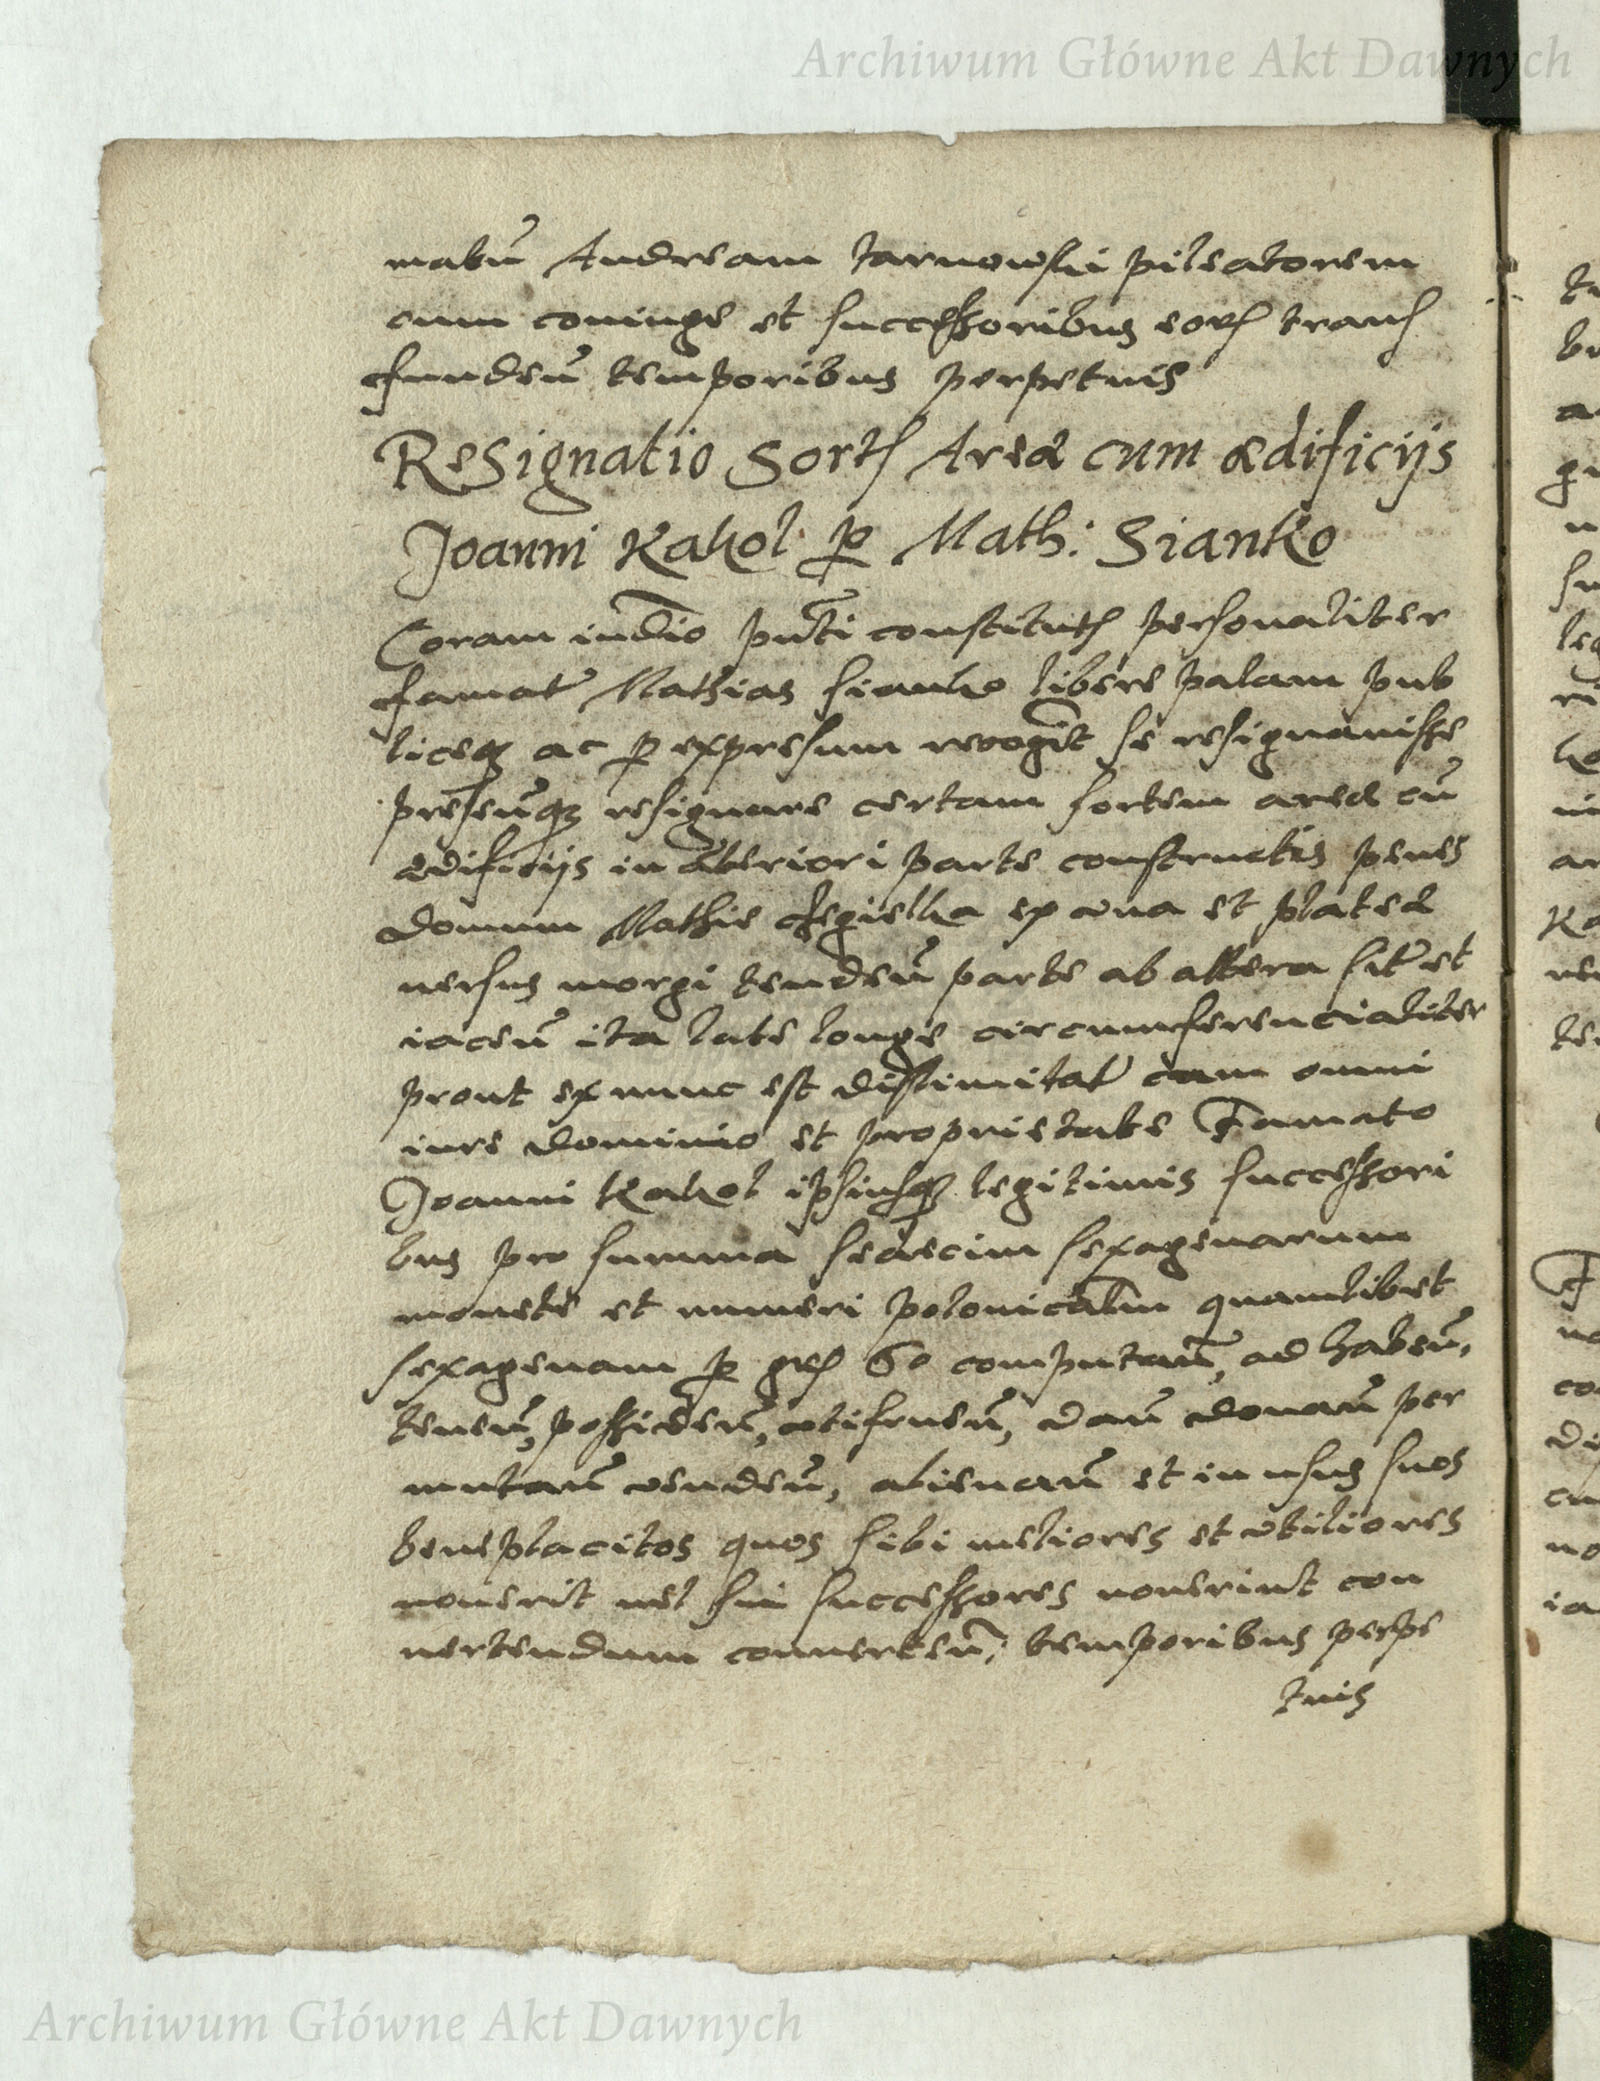 Archiwum Główne Akt Dawnych
matum Andream Tarnowski pileatorem
cum coniuge et successoribus eorum trans
funden̄ temporibus perpetuis
Resignatio Sortis Areæ cum ædificijs
Joanni Kakol p Math: Sianko
Coram iudio pnti constitutus personaliter
famat Mathias Sianko libere palam pub
liceq ac p expresum recognit se resignauisse
presenq resignare certam sortem areæ cu
ædificijs in anteriori parte constructis penes
domum Mathie ex una et plateæ
uersus morgi tenden parte ab altera sit et
iacen ita late longe circumferencialiter
prout ex nunc est distimitat cum omni
iure dominio et proprietate Famato
Joanni Kakol ipsiusq legitimis successori
bus pro summa sedecim sexagenarum
monete et numeri polonicalm quamlibet
sexagenam p grs 60 computan, ad haben,
tenen, possiden, utifruen, dan donan per
mutan uenden, alienan et in usus suos
beneplacitos quos sibi meliores et utiliores
nouerit uel sui successores nouerint con
uertendum conuerten, temporibus perpe
tuis
Archiwum Główne Akt Dawnych